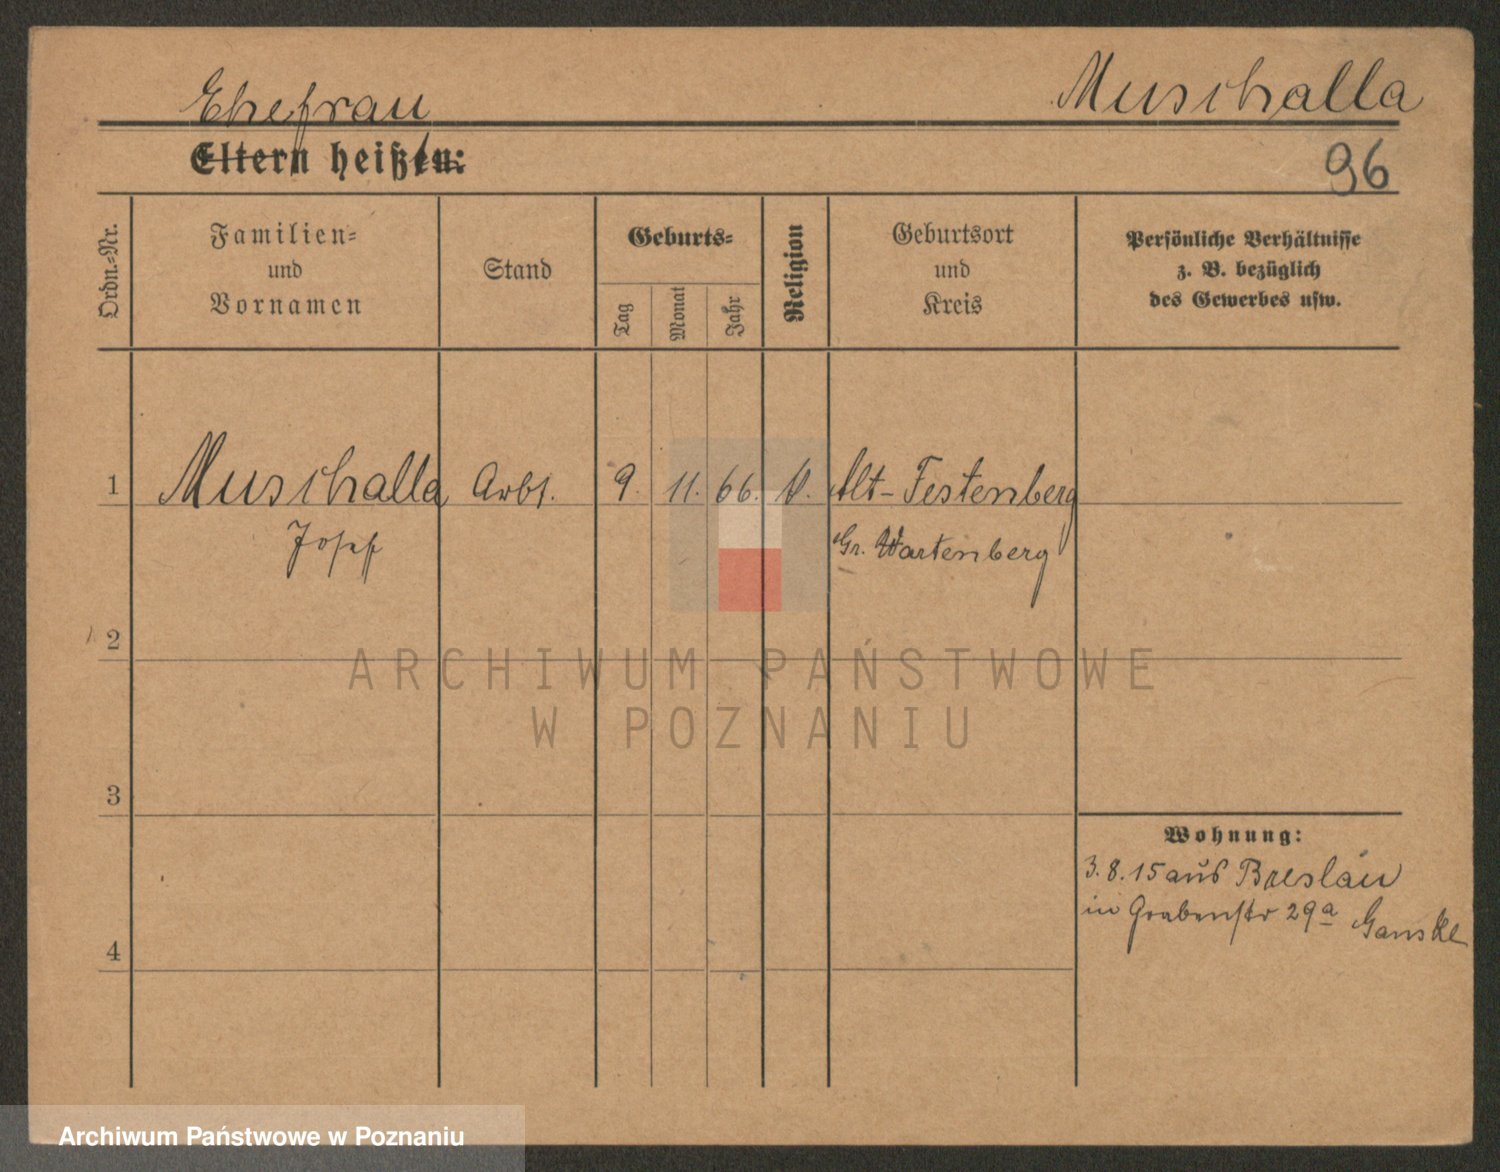 Ehefrau
Muschalla
Eltern heißen:
96
Ordn.-Nr.
Familien-
und
Vornamen
Stand
Geburts-
Tag
Monat
Jahr
Religion
Geburtsort
und
Kreis
Persönliche Verhältnisse
z. B. bezüglich
des Gewerbes usw.
1 Muschalla Arbt. 9. 11. 66. Alt-Festenberg
Josef Gr. Wartenberg
2
ARCHIWUM PAŃSTWOWE
W POZNANIU
3
Wohnung:
3.8.15 aus Breslau
in Grabenstr 29a Ganske
4
Archiwum Państwowe w Poznaniu